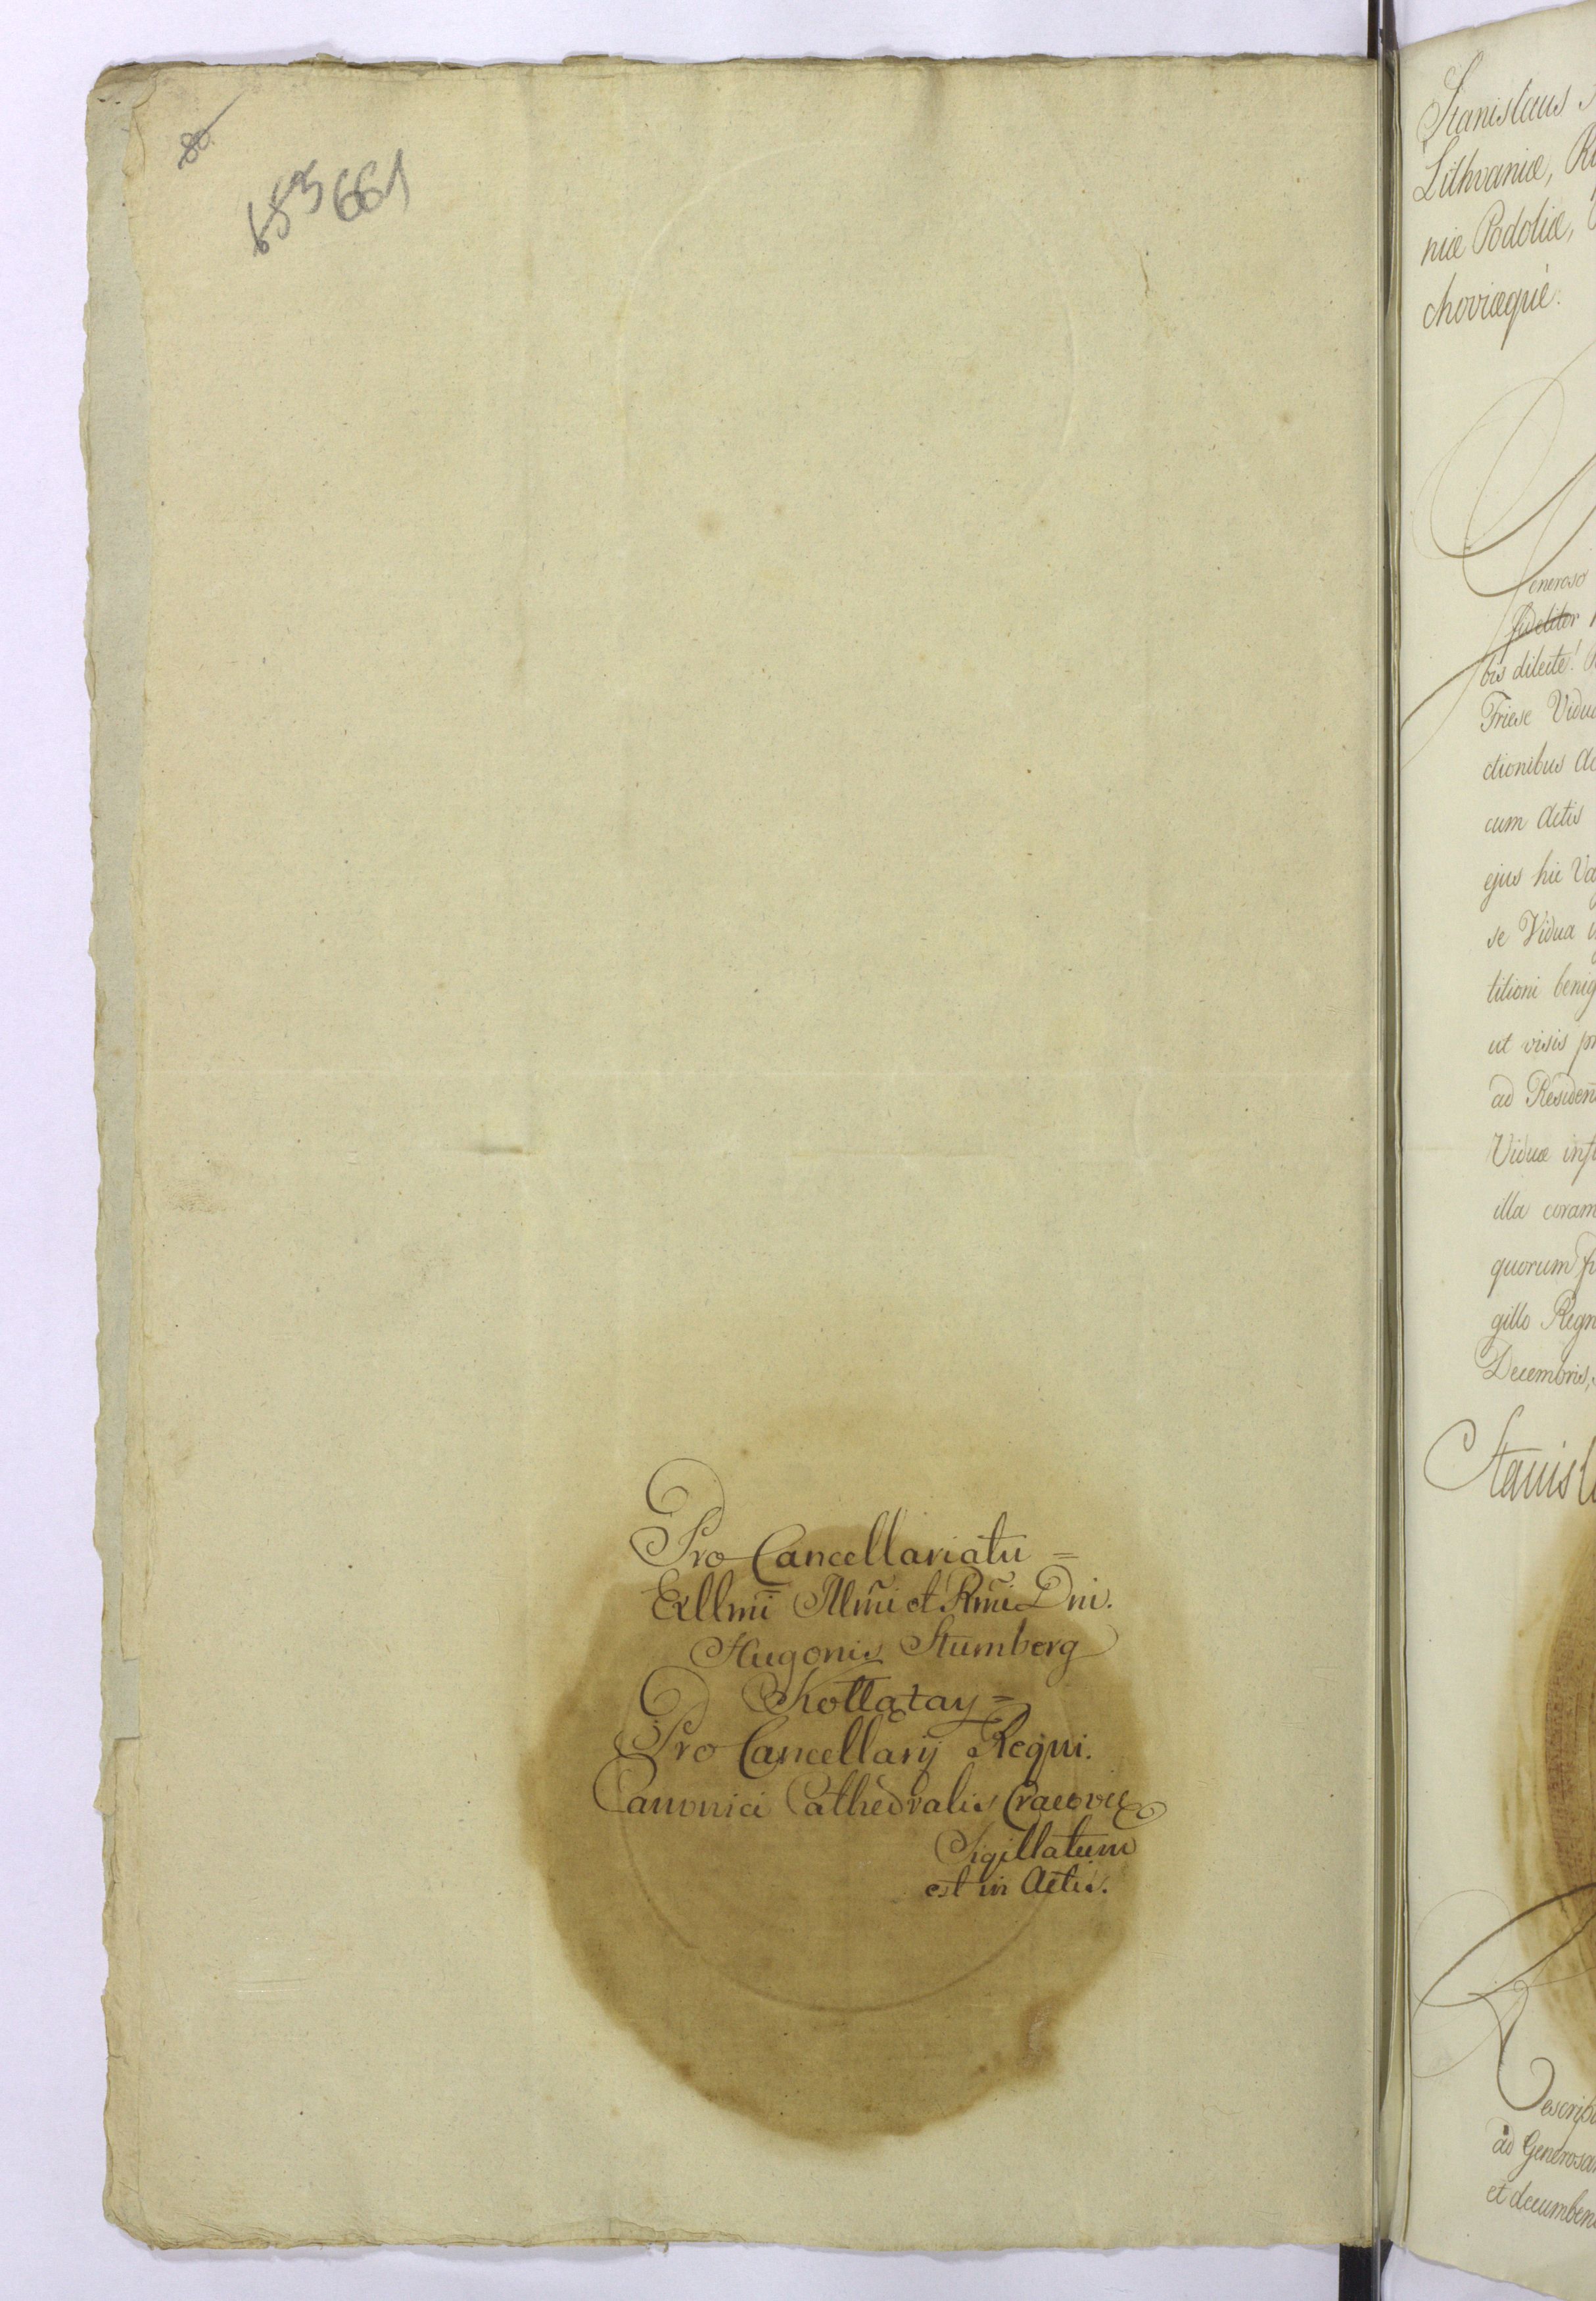 80
653 661
Pro Cancellariatu =
Exllmi Illmi et Rmi Dni.
Hugonis Stumberg
Kołłątay =
Pro Cancellarij Regni.
Canonici Cathedralis Cracovie
Sigillatum
est in Actis.
Stanislaus
Lithvaniæ,
niæ Podoliæ,
choviæque.
Generoso
fideliter
bis dilecte!
Friese Vidu
ctionibus
cum Actis
ejus hic
se Vidua
titioni benig
ut visis
ad Residen
Viduæ
illa coram
quorum
gillo Regn
Decembris,
Stanisl
Rescrip
ad Generosa
et decumben